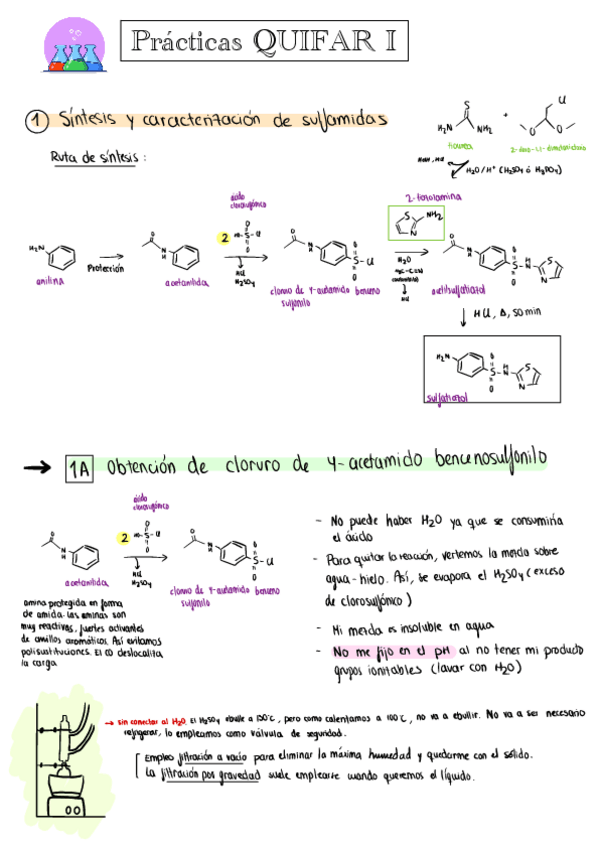 Prácticas QUIFAR I
1 Síntesis y caracterización de sulfamidas
Ruta de síntesis:
S
H2N NH2
+
Cl
O O
tiourea
H2O/H+ (H2SO4 ó H3PO4)
ácido
clorosulfónico
2
HO-S-Cl
O
O
2-tiazolamina
S
N
NH2
H2N
anilina
Protección
O
N
H
acetanilida
HCl
H2SO4
O
N
H
O
S-Cl
O
cloruro de 4-acetamido benceno
sulfonilo
H2O
HCl
O
N
H
O
S-N
O
H
S
N
acetilsulfatiazol
HCl, Δ, 50 min
H2N
O
S-N
O
H
S
N
sulfatiazol
→ 1A Obtención de cloruro de 4-acetamido bencenosulfonilo
ácido
clorosulfónico
O
N
H
2
HO-S-Cl
O
O
HCl
H2SO4
O
N
H
O
S-Cl
O
acetanilida
cloruro de 4-acetamido benceno
sulfonilo
amina protegida en forma
de amida. Las aminas son
muy reactivas, fuertes activantes
de anillos aromáticos. Así evitamos
polisustituciones. El CO deslocaliza
la carga.
- No puede haber H2O ya que se consumiría
el ácido
- Para quitar la reacción, vertemos la mezcla sobre
agua-hielo. Así, se evapora el H2SO4 (exceso
de clorosulfónico)
- Mi mezcla es insoluble en agua
- No me fijo en el pH al no tener mi producto
grupos ionizables (lavar con H2O)
→ sin conectar al H2O. El H2SO4 ebulle a 150°C, pero como calentamos a 100°C, no va a ebullir. No va a ser necesario
refrigerar, lo empleamos como válvula de seguridad.
Empleo filtración a vacío para eliminar la máxima humedad y quedarme con el sólido.
La filtración por gravedad suele emplearse cuando queremos el líquido.